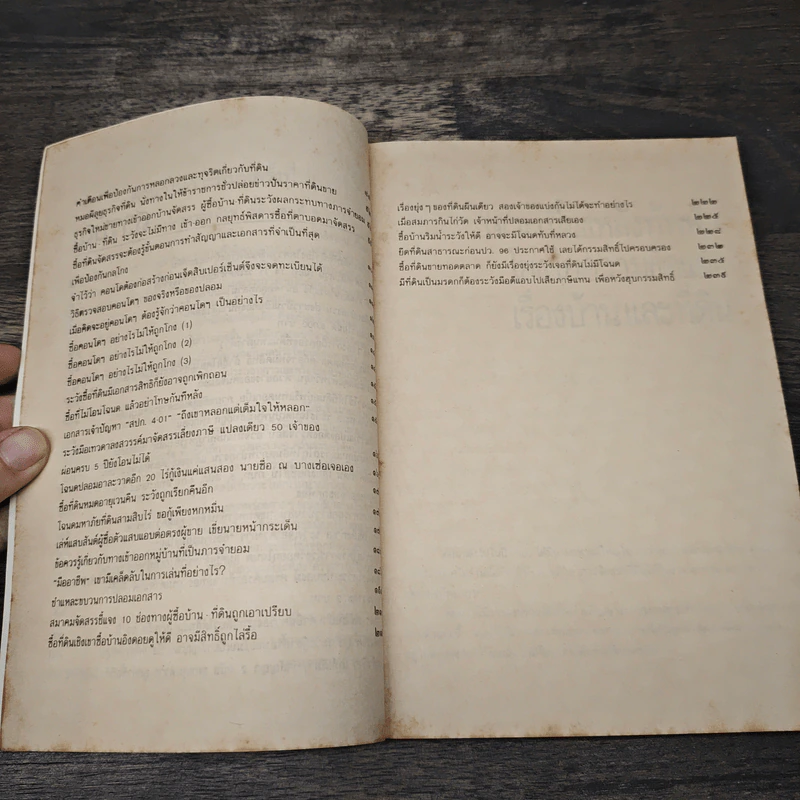 คำเตือนเพื่อป้องกันการหลอกลวงและทุจริตเกี่ยวกับที่ดิน
หมอผีลุยธุรกิจที่ดิน นั่งทางในให้ข้าราชการชั่วปล่อยข่าวปั่นราคาที่ดินขาย
ธุรกิจใหม่ขายทางเข้าออกบ้านจัดสรร ผู้ซื้อบ้าน-ที่ดินระวังผลกระทบทางภารจำยอม
ซื้อบ้าน-ที่ดิน ระวังจะไม่มีทาง เข้า-ออก กลยุทธ์พิสดารซื้อที่ตาบอดมาจัดสรร
ซื้อที่ดินจัดสรรจะต้องรู้ขั้นตอนการทำสัญญาและเอกสารที่จำเป็นที่สุด
เพื่อป้องกันกลโกง
จำไว้ว่า คอนโดต้องก่อสร้างก่อนเจ็ดสิบเปอร์เซ็นต์จึงจะจดทะเบียนได้
วิธีตรวจสอบคอนโดฯ ของจริงหรือของปลอม
เมื่อคิดจะอยู่คอนโดฯ ต้องรู้จักว่าคอนโดฯ เป็นอย่างไร
ซื้อคอนโดฯ อย่างไรไม่ให้ถูกโกง (1)
ซื้อคอนโดฯ อย่างไรไม่ให้ถูกโกง (2)
ซื้อคอนโดฯ อย่างไรไม่ให้ถูกโกง (3)
ระวังซื้อที่ดินมีเอกสารสิทธิก็ยังอาจถูกเพิกถอน
ซื้อที่ไม่โอนโฉนด แล้วอย่าโทษกันทีหลัง
เอกสารเจ้าปัญหา "สปก. 4-01" "ถึงเขาหลอกแต่เต็มใจให้หลอก"
ระวังมือเทวดาลงสวรรค์มาจัดสรรเลี่ยงภาษี แปลงเดียว 50 เจ้าของ
ผ่อนครบ 5 ปียังโอนไม่ได้
โฉนดปลอมอาละวาดอีก 20 ไร่กู้เงินแค่แสนสอง นายชื่อ ณ บางเซ่อเจอเอง
ซื้อที่ดินหมดอายุเวนคืน ระวังถูกเรียกคืนอีก
โฉนดมหาภัยที่ดินสามสิบไร่ ขอกู้เพียงหกหมื่น
เล่ห์แสบลันต์ผู้ซื้อตัวแสบแอบต่อตรงผู้ขาย เขี่ยนายหน้ากระเด็น
ข้อควรรู้เกี่ยวกับทางเข้าออกหมู่บ้านที่เป็นภารจำยอม
"มืออาชีพ" เขามีเคล็ดลับในการเล่นที่อย่างไร?
ชำแหละขบวนการปลอมเอกสาร
สมาคมจัดสรรชี้แจง 10 ช่องทางผู้ซื้อบ้าน-ที่ดินถูกเอาเปรียบ
ซื้อที่ดินเชิงเขาซื้อบ้านอิงดอยดูให้ดี อาจมีสิทธิ์ถูกไล่รื้อ
เรื่องยุ่งๆ ของที่ดินผืนเดียว สองเจ้าของแบ่งกันไม่ได้จะทำอย่างไร ๒๒๒
เมื่อสมภารกินไก่วัด เจ้าหน้าที่ปลอมเอกสารเสียเอง ๒๒๕
ซื้อบ้านริมน้ำระวังให้ดี อาจจะมีโฉนดทับที่หลวง ๒๒๘
ยึดที่ดินสาธารณะก่อนปว. 96 ประกาศใช้ เลยได้กรรมสิทธิ์ไปครอบครอง ๒๓๒
ซื้อที่ดินขายทอดตลาด ก็ยังมีเรื่องยุ่งระวังเจอที่ดินไม่มีโฉนด ๒๓๕
มีที่ดินเป็นมรดกก็ต้องระวังมือดีแอบไปเสียภาษีแทน เพื่อหวังฮุบกรรมสิทธิ์ ๒๓๘